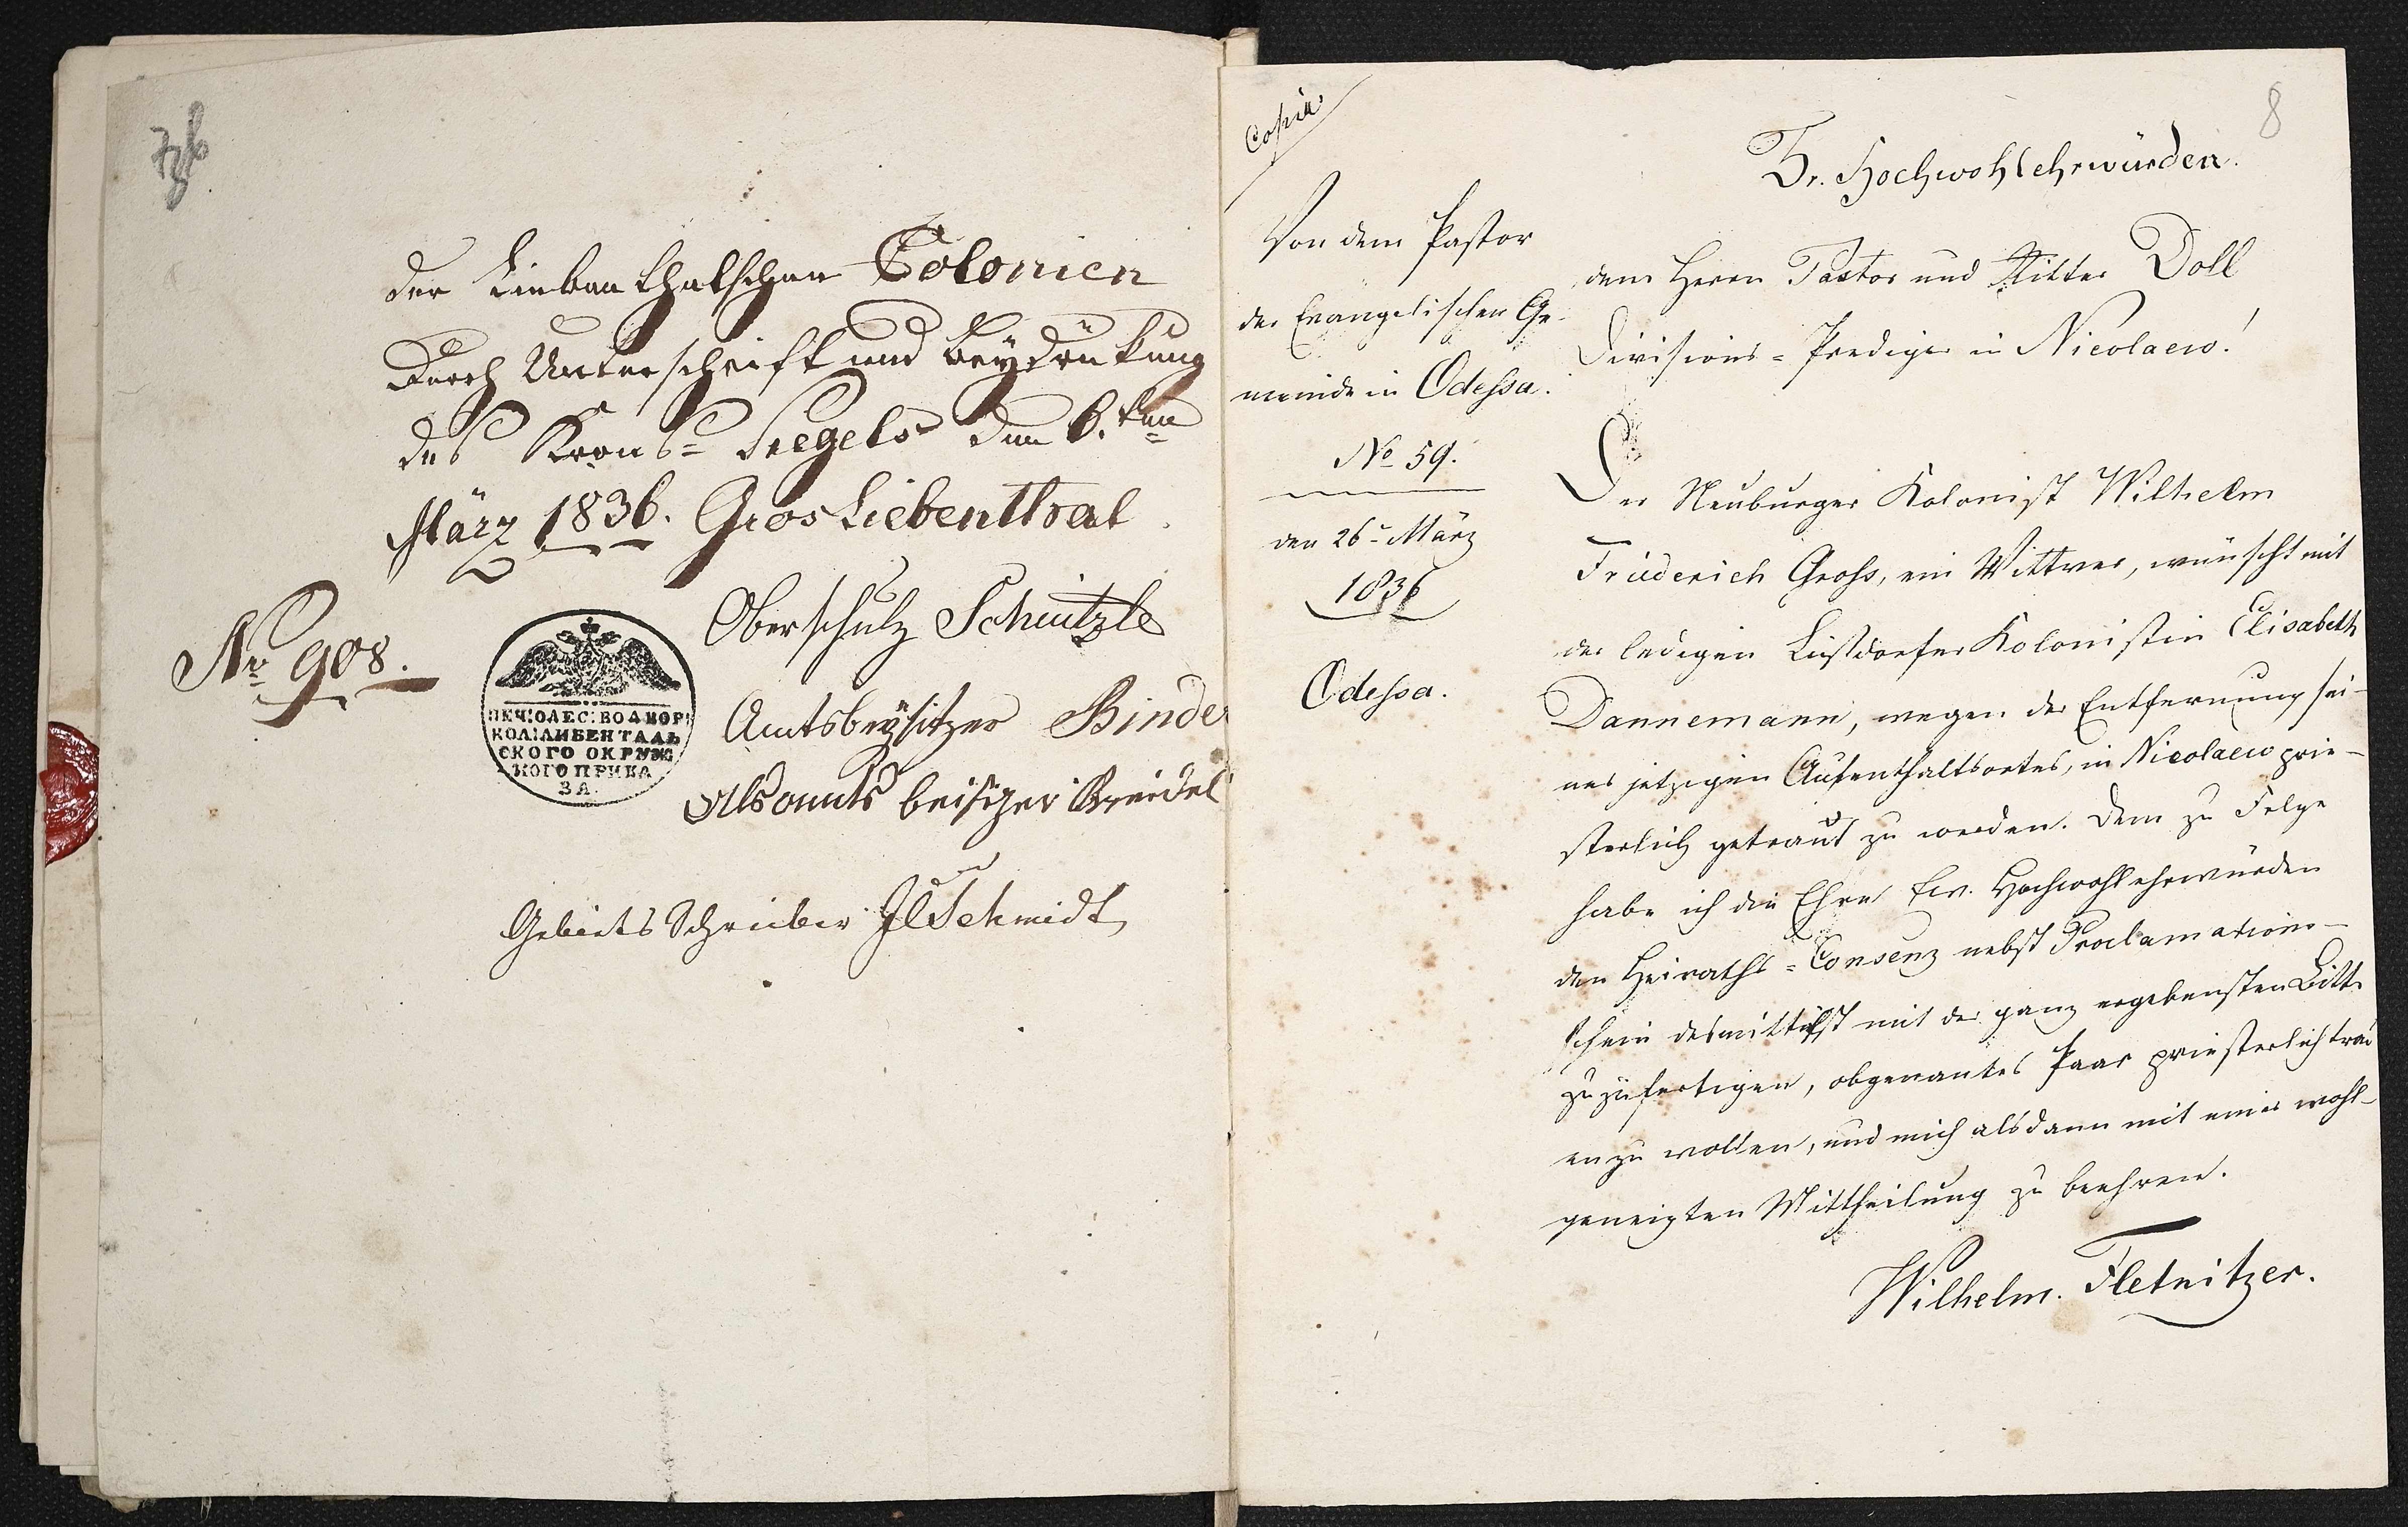 der Liebenthalschen Colonien
Durch Unterschrift und Beydrükung
des Krons= Siegels den 6.ten
März 1836. Gros Liebenthal.
No 908.
ПЕЧ:ОДЕС:ВОДВОР:
КОЛ:ЛИБЕНТАЛЬ
СКОГО ОКРУЖ
НОГО ПРИКА
ЗА.
Oberschulz
Amtsbeysitzer Binder
Gebiets Schreiber Schmidt
8
Copia
Von dem Pastor
der Evangelischen Ge-
meinde in Odessa.
No 59.
den 26n März
1836
Odessa.
Sr. Hochwohlehrwürden.
dem Herrn Pastor und Ritter Doll
Divisions=Prediger in Nicolaew!
Der Neuburger Kolonist Wilhelm
Friederich Gross, ein Wittwer, wünscht mit
der ledigen Lustdorfer Kolonistin Elisabeth
Dannemann, wegen der Entfernung sei-
nes jetzigen Aufenthaltsortes, in Nicolaew prie-
sterlich getraut zu werden. Dem zu Folge
habe ich die Ehre Ew. Hochwohlehrwürden
den Heiraths=Consenz nebst Proclamations-
schein desmittelst mit der ganz ergebensten Bitte
zuzufertigen, obgenantes Paar priesterlich trau
en zu wollen, und mich alsdann mit einer wohl-
geneigten Mittheilung zu beehren.
Wilhelm. Fletnitzer.